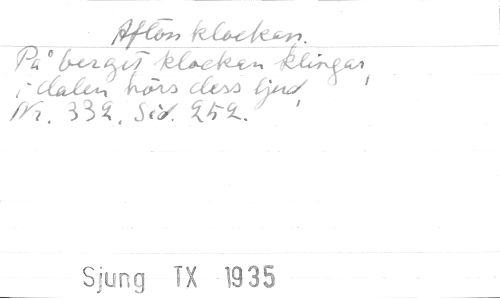 Aftonklockan.
På berget klockan klingar,
i dalen hörs dess ljud,
Nr. 332, Sid. 252.
Sjung TX 1935